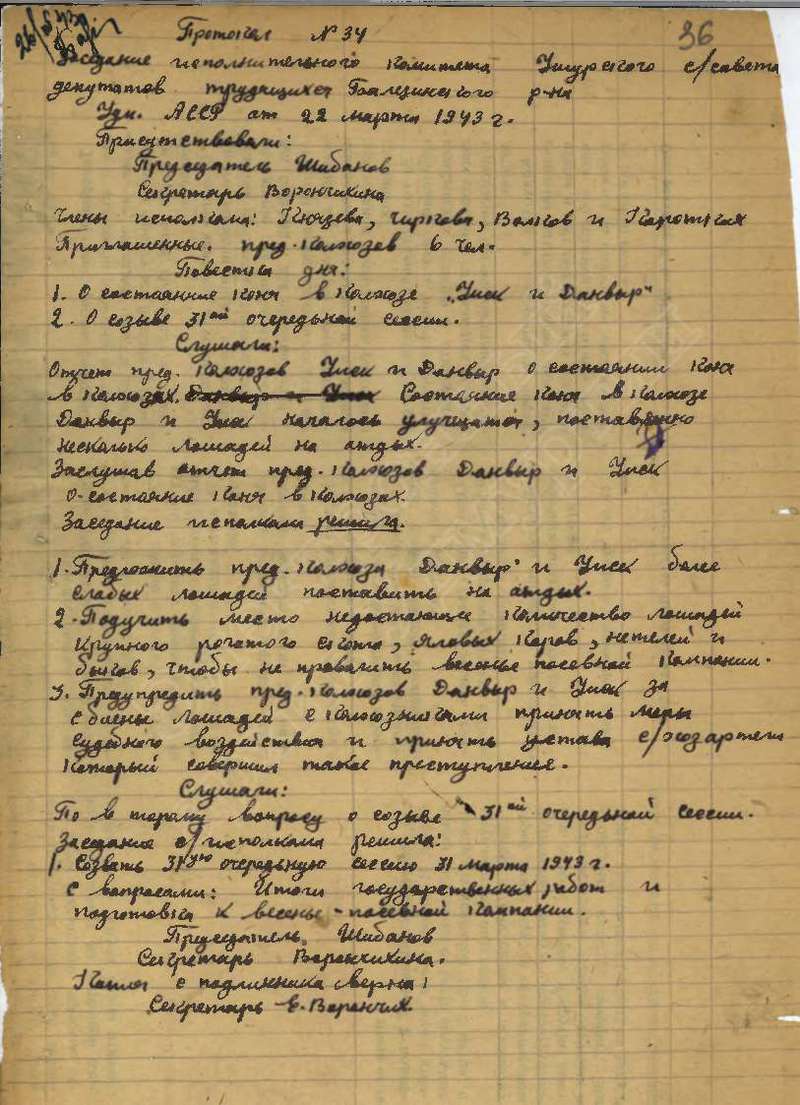 26/V 43
36
Протокол № 34
Заседание исполнительного комитета Ушурского с/совета
депутатов трудящихся Балезинского р-на
Удм. АССР от 22 марта 1943 г.
Присутствовали:
Председатель Шибанов
Секретарь Ворончихина
Члены исполкома: Князева, Чиркова, Волков и Коротких
Приглашенные. пред. колхозов 6 чел.
Повестка дня:
1. О состояние коня в колхозе „Уиск и Данвыр"
2. О созыве 31ой очередьной сессии.
Слушали:
Отчет пред. колхозов Уиск и Данвыр о состоянии коня
в колхозах. Данвыр и Уиск Состояние коня в колхозе
Данвыр и Уиск началось улучшатся, поставленно
несколько лошадей на отдых.
Заслушав отчет пред. колхозов Данвыр и Уиск
о состояние коня в колхозах.
Заседание исполкома решила.
1. Предложить пред. колхоза Данвыр" и Уиск более
слабых лошадей поставить на отдых.
2. Подучить место недостающи количество лошадей
крупного рогатого скота, яловых коров, нетелей и
быков, чтобы не провалить весенье посевной кампании.
3. Предупредить пред. колхозов Данвыр и Уиск за
сбаены лошадей с колхозниками принять меры
судебного воздействия и принять устава с/хозартели
который совершил такое преступление.
Слушали:
По второму вопросу о созыве 31ой очередьной сессии.
Заседание с/исполкома решила:
1. Созвать 31ую очередьную сессию 31 марта 1943 г.
с вопросами: Итоги государственных работ и
подготовка к весенье-посевной кампании.
Председатель Шибанов
Секретарь Ворончихина.
Копия с подлинника верна:
Секретарь Е. Ворончих.